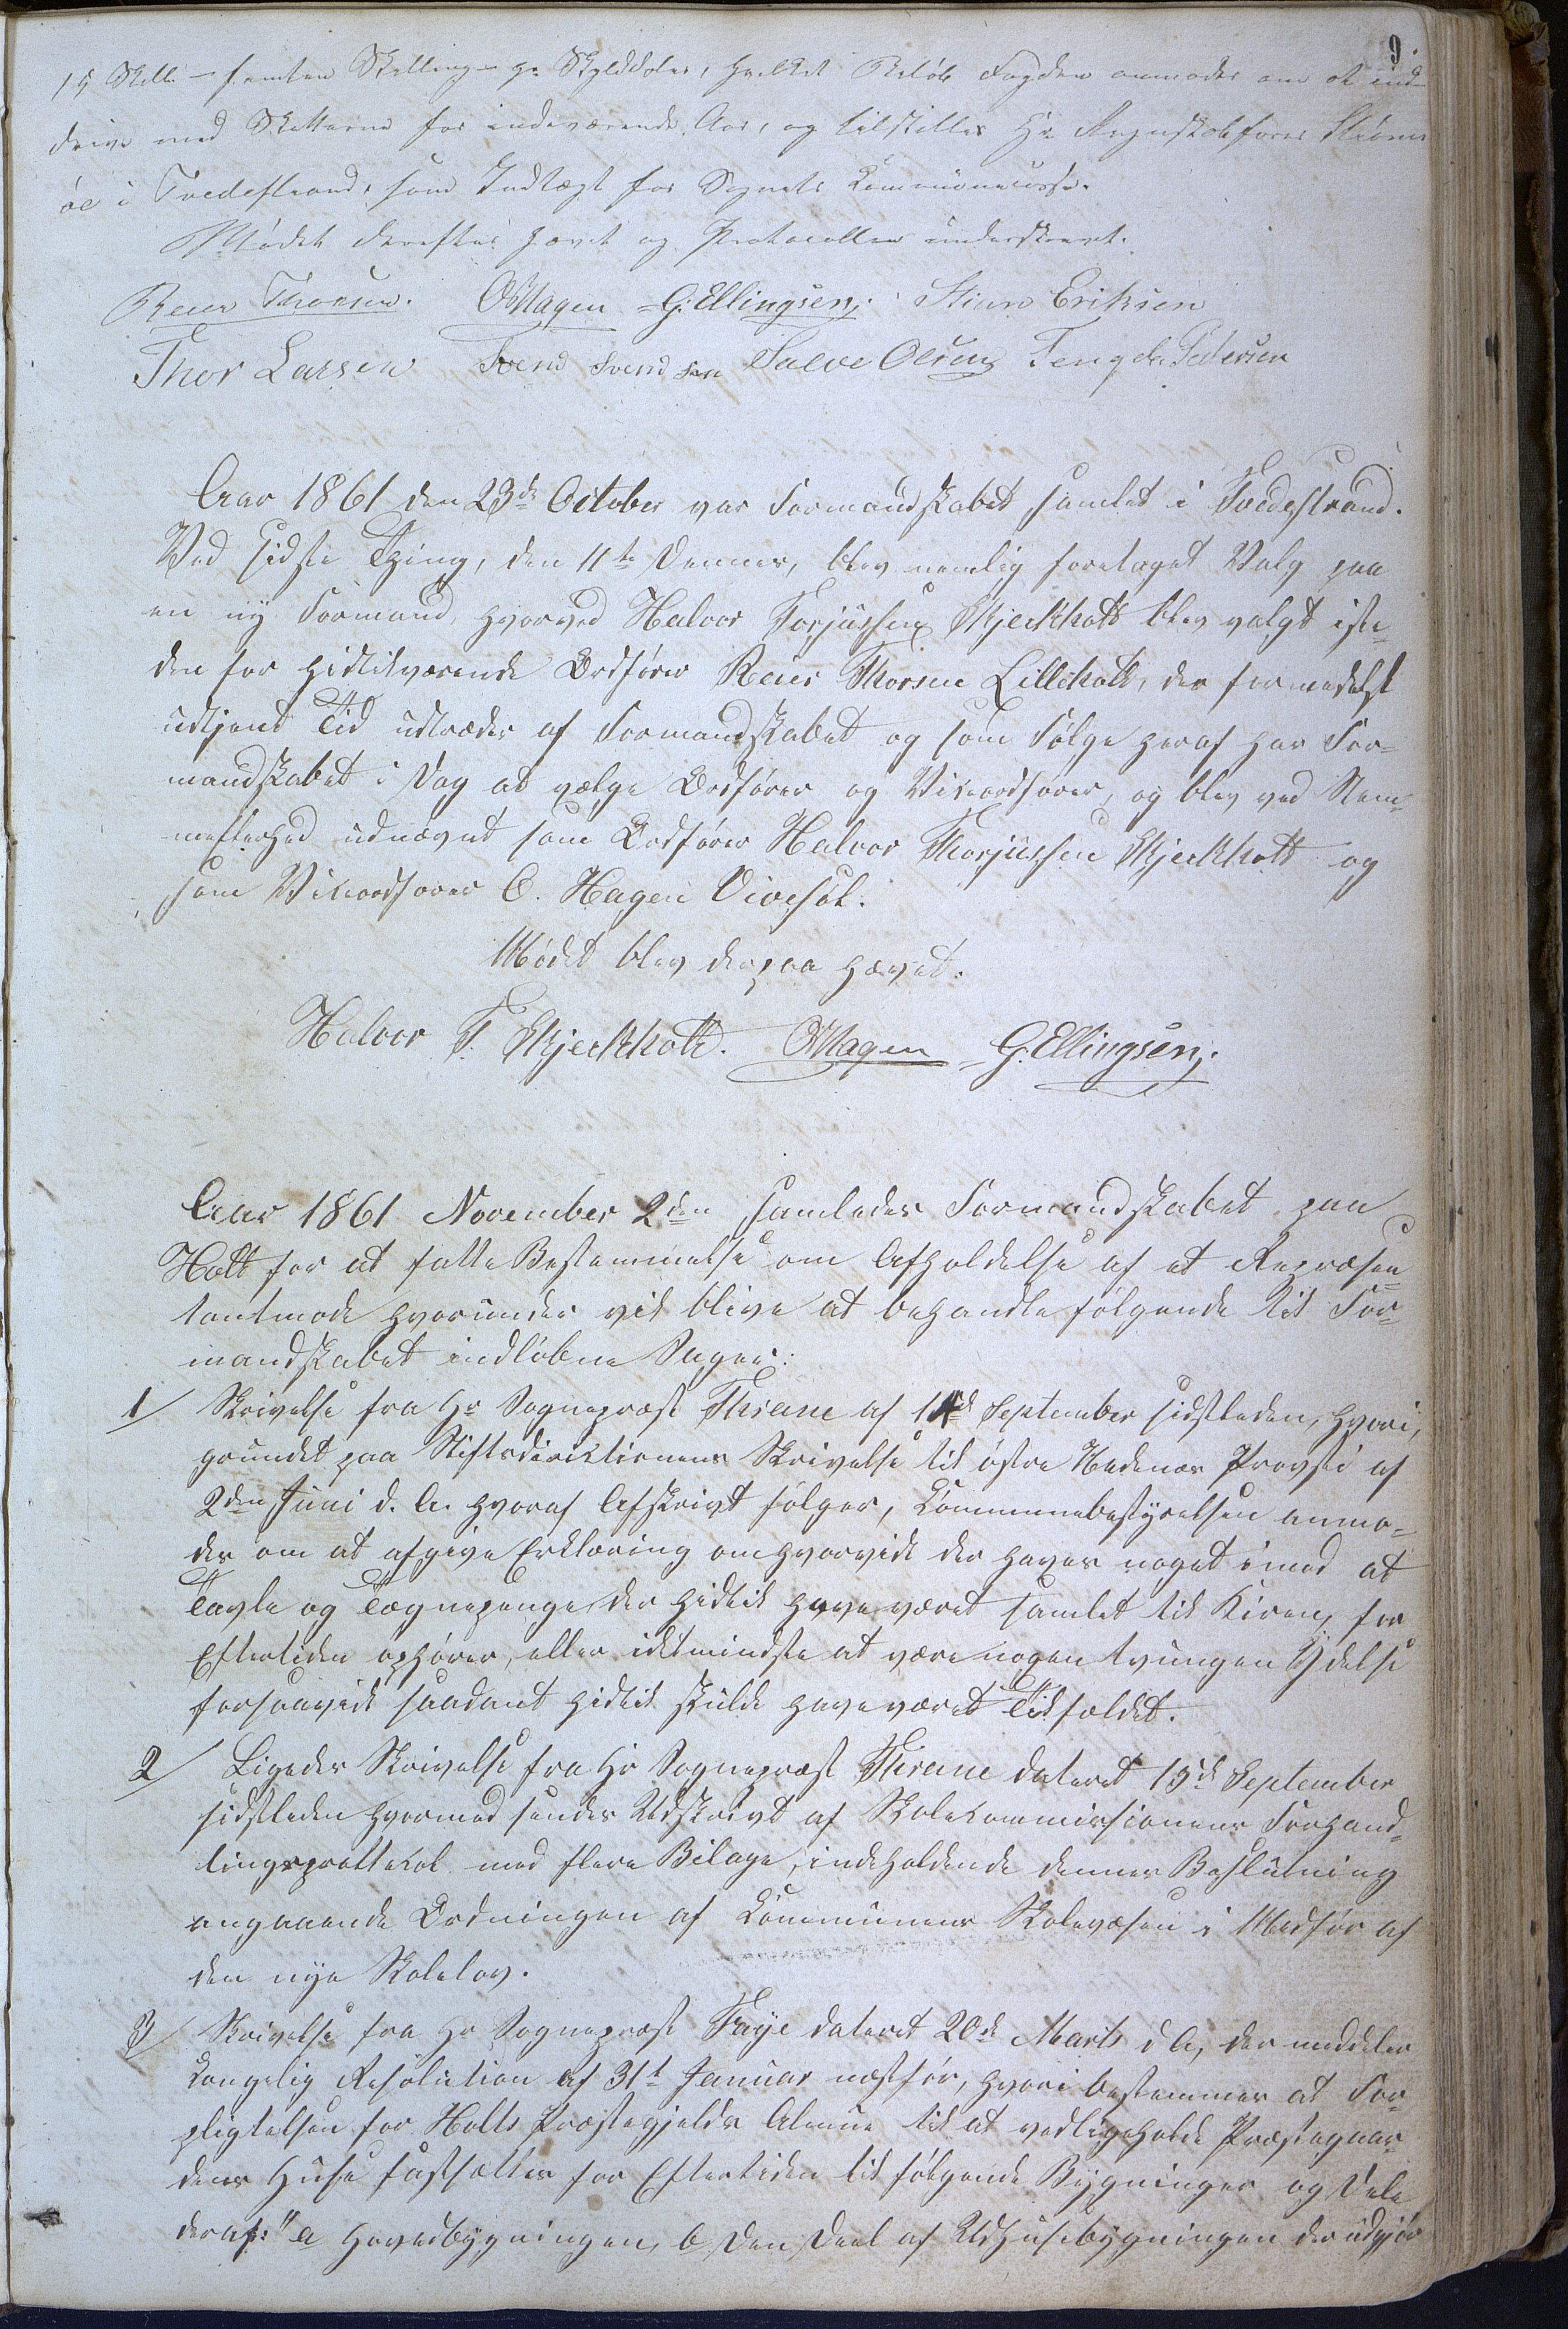 9.
15 Skill - femten Skilling - pr Skylddaler, hvilket Beløb Fogden anmodes om at ind-
drive med Skatterne for indeværende Aar, og tilstilles Hr Regnskabsfører Strøms-
øe i Tvedestrand, som Indtægt for Sognets Communecasse.
Mødet derefter hævet og Protocollen underskrevet.
Reier Thorsen. OHagen G. Ellingsen. Stian Eriksen
Thor Larsen Svend Svendsen Salve Olsen Tengels Pedersen
Aar 1861 den 23de October var Formandskabet samlet i Tvedestrand.
Ved sidste Thing, den 11te Dennes, blev nemlig foretaget Valg paa
en ny Formand, hvorved Halvor Torjussen Skjerkholt blev valgt iste-
den for hidtilværende Ordfører Reier Thorsen Lilleholt, der formedelst
udtjent Tid udtræder af Formandskabet og som Følge heraf har For-
mandskabet i Dag at vælge Ordfører og Viseordfører, og blev ved Stem-
mefleerhed udnævnt som Ordfører Halvor Thorjussen Skjerkholt og
som Viseordfører O. Hagen Diversøl.
Mødet blev derpaa hævet.
Halvor T. Skjerkholt. OHagen G. Ellingsen.
Aar 1861 November 2den samledes Formandskabet paa
Holt for at fatte Bestemmelse om Afholdelse af et Repræsen-
tantmøde hvorunder vil blive at behandle følgende til For-
mandskabet indløbne Sager:
1/ Skrivelse fra Hr Sogneprest Thrane af 14de September sidstleden, hvori,
grundet paa Stiftsdirektionens Skrivelse til østre Nedenæs Provsti af
2den Juni d. A. hvoraf Afskrivt følger, Kommunebestyrelsen anmo-
des om at afgive Erklæring om hvorvidt der haves noget imod at
Tavle og Tægnepenge der hidtil have været samlet til Kirken, for
Eftertiden ophører, eller idetmindste at være nogen tvungen Ydelse
forsaavidt saadant hidtil skulde have været Tilfældet.
2/ Ligedes Skrivelse fra Hr Sogneprest Thrane dateret 15de September
sidstleden hvormed sendes Udskrivt af Skolekommissionens Forhand-
lingsprottekol med flere Bilage, indeholdende dennes Beslutning
angaaende Ordningen af Kommunens Skolevæsen i Medfør af
den nye Skolelov.
3/ Skrivelse fra Hr Sogneprest Faye dateret 20de Marts d A, der meddeler
Kongelig Resolution af 31t Januar næstfør, hvori bestemmes at For-
pligtelsen for Holts Præstegjelds Almue til at vedligeholde Præstegaar-
dens Huse fastsættes for Eftertiden til følgende Bygninger og Dele
deraf: "a Hovedbygningen, b, Den Deel af Udhusebygningen der udgjør